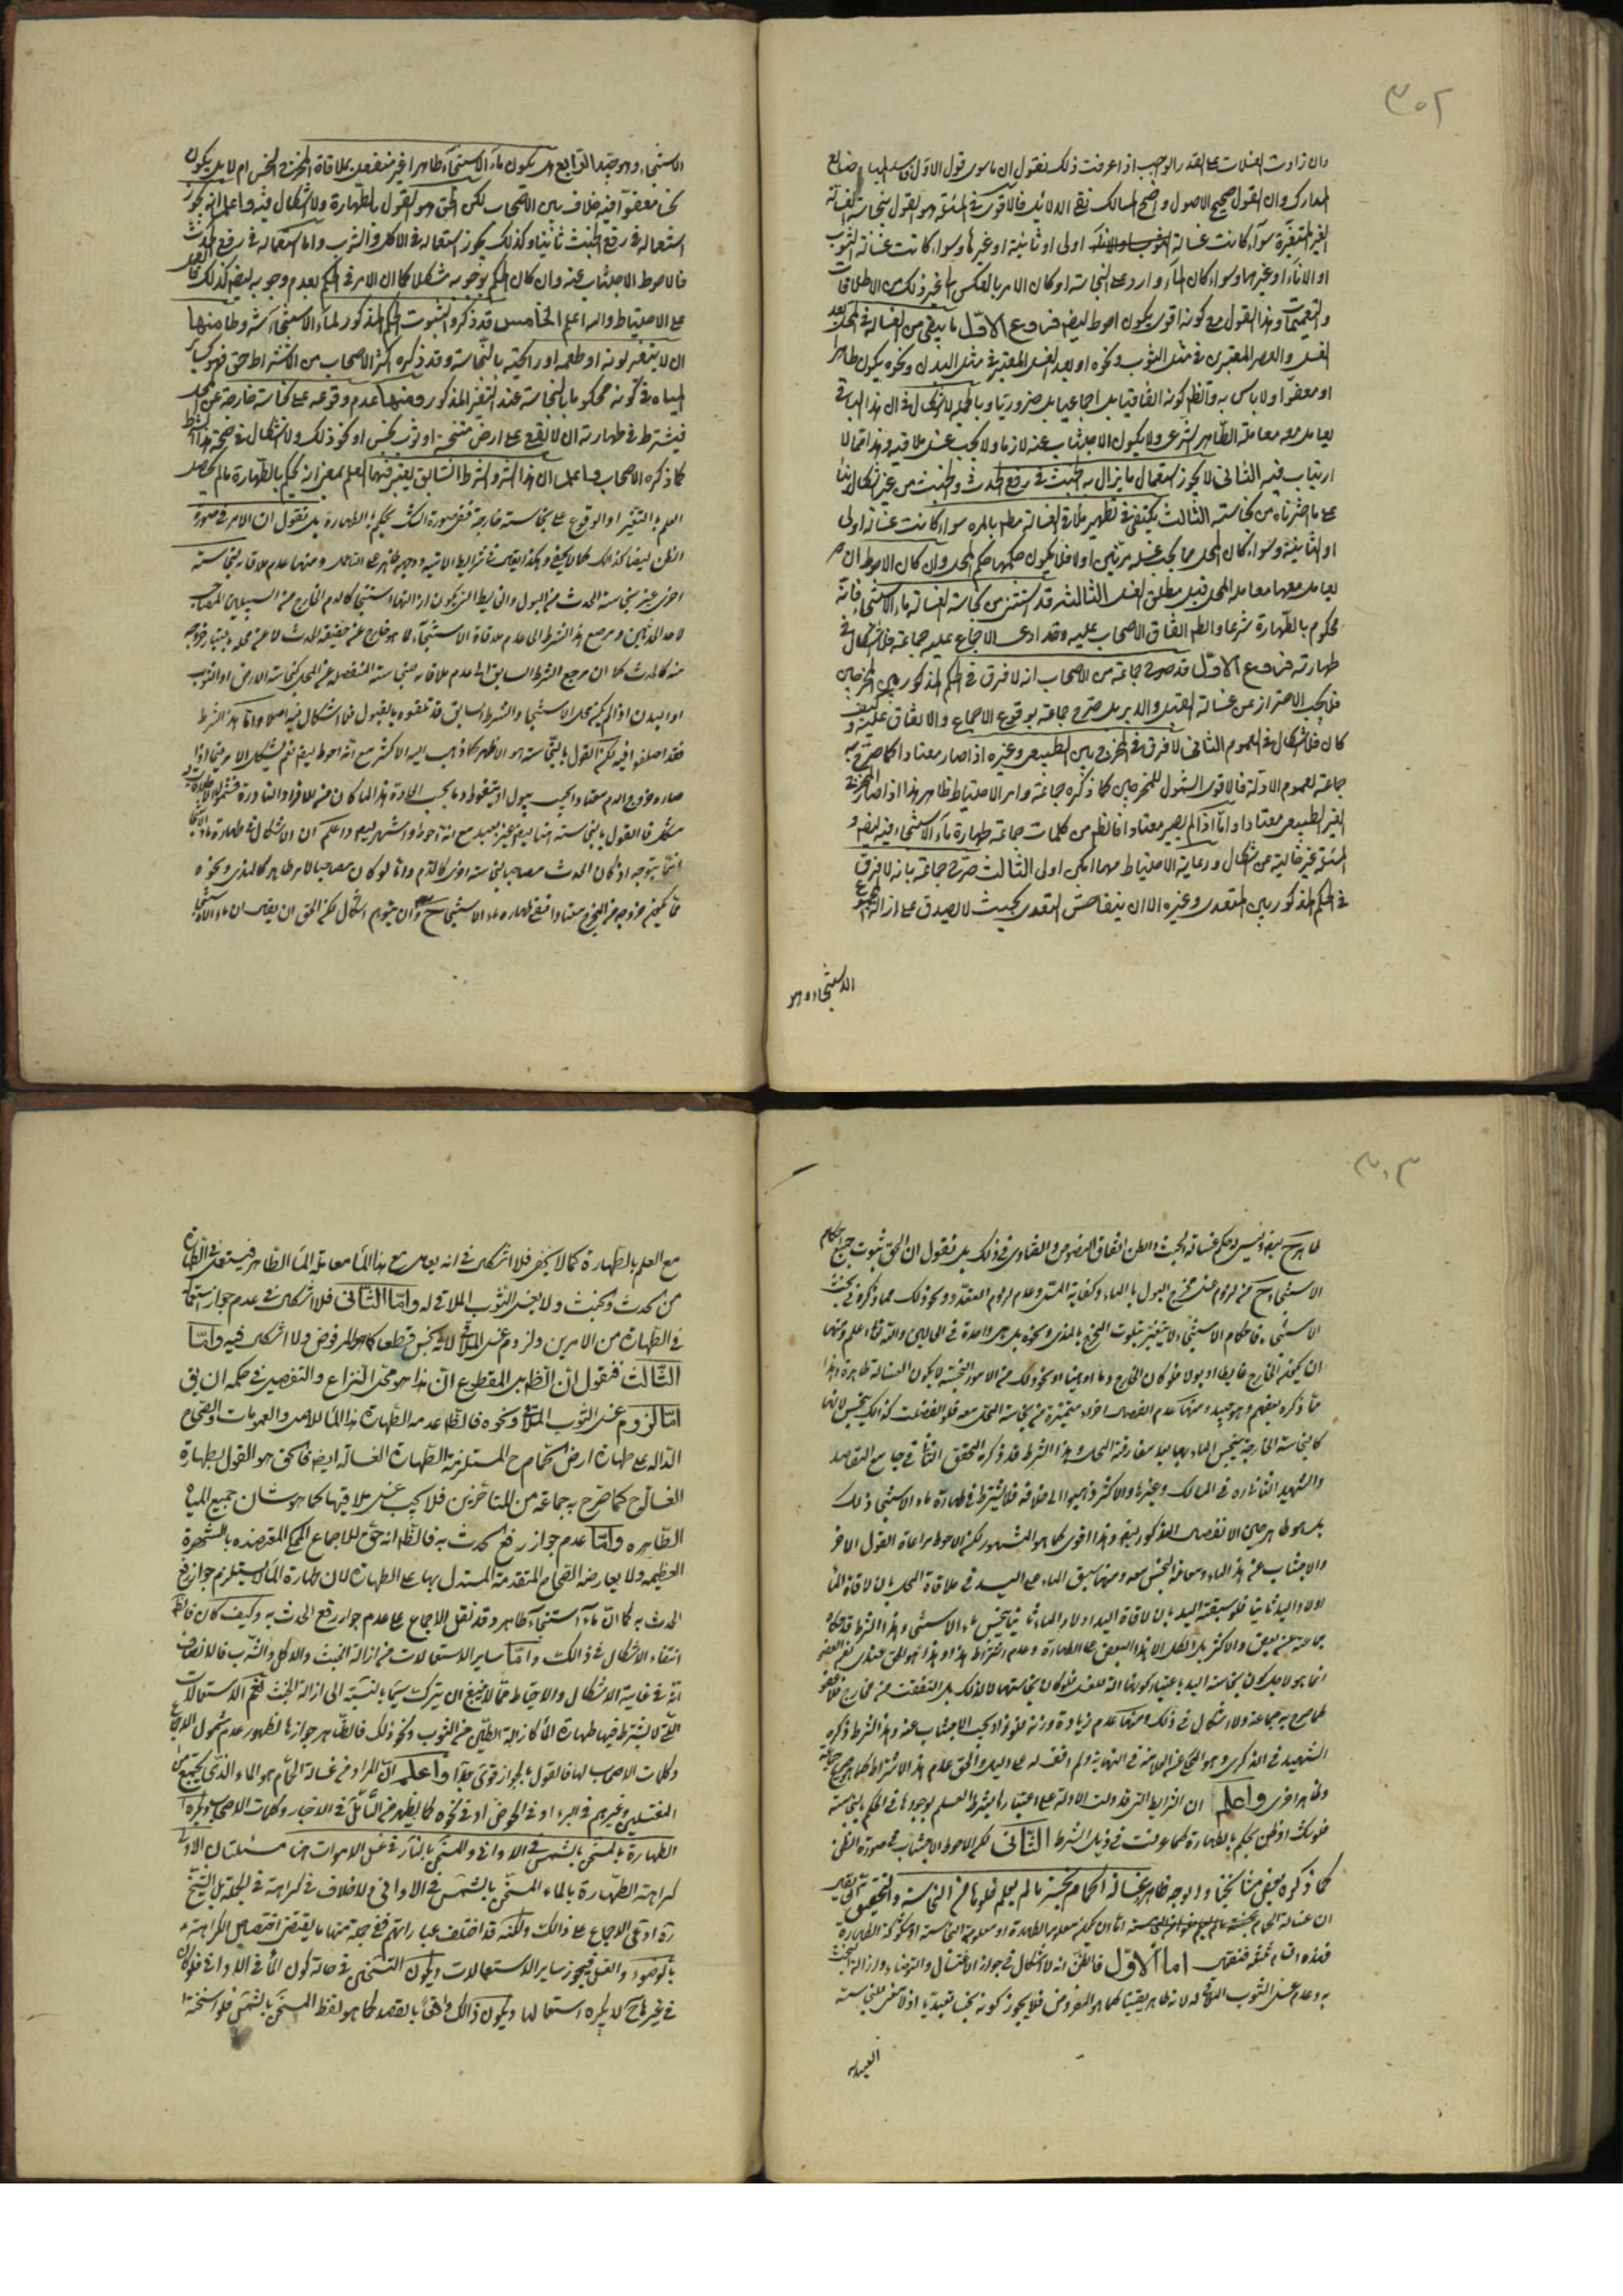 ٣٠٢
وان زادت الغسلات على القدر الواجب اذا عرفت ذلك فنقول ان ما سوى قول الاول
المدارك وان القول صحيح الاصول واضح المسالك نقى الدلائل فالاقوى فى المسئلة هو القول بنجاسة الغسالة
الغير المتغيرة سواء كانت غسالة اولى او ثانية او غيرها وسواء كانت غسالة الثوب
او الاناء او غيرهما وسواء كان الماء واردا على النجاسة او كان الامر بالعكس الى غير ذلك من الاطلاقات
والتعميمات وهذا القول مع كونه اقوى يكون احوط ايضا فروع الاول ما يبقى من الغسالة فى المحل بعد
الغسل والعصر المعتبرين فى مثل الثوب ونحوه او بعد الغسل المعتبر فى مثل البدن ونحوه يكون طاهرا
او معفوا ولا باس به والظ كونه اتفاقيا بل اجماعيا بل ضروريا وبالجملة لا اشكال فى ان هذا الباقى
يعامل معه معاملة الطاهر الشرعى ولا يكون الاجتناب عنه لازما ولا يجب غسل ملاقيه وهذا مما لا
ارتياب فيه الثانى لا يجوز استعمال ما يزال به الخبث فى رفع الحدث والخبث من غير اشكال بناء
على ما اخترناه من نجاسته الثالث يكتفى فى تطهير ملاقى الغسالة مطلقا بالمرة سواء كانت غسالة اولى
او الثانية وسواء كان المحل مما يجب غسله مرتين اولا فلا يكون حكمها حكم المحل وان كان الاحوط ان
يعامل معها معاملة المحل قبل مطلق الغسل الثالث قد استثنى من نجاسة الغسالة ماء الاستنجاء فانه
محكوم بالطهارة شرعا والظ اتفاق الاصحاب عليه وقد ادعى الاجماع عليه جماعة فلا اشكال فى
طهارته فروع الاول قد صرح جماعة من الاصحاب انه لا فرق فى الحكم المذكور بين المخرجين
فلا يجب الاحتراز عن غسالة القبل والدبر بل صرح جماعة بوقوع الاجماع والاتفاق عليه وكيف
كان فلا اشكال فى العموم الثانى لا فرق فى المخرج بين الطبيعى وغيره اذا صار معتادا كما صرح به
جماعة لعموم الادلة فالاقوى الشمول للمخرجين كما ذكره جماعة وامر الاحتياط ظاهر هذا اذا صار المخرج
الغير الطبيعى معتادا واما اذا لم يصر معتادا فالظ من كلمات جماعة طهارة ماء الاستنجاء فيه ايضا و
المسئلة غير خالية عن اشكال ورعاية الاحتياط مهما امكن اولى الثالث صرح جماعة بانه لا فرق
فى الحكم المذكور بين المتعدى وغيره الا ان يتفاحش التعدى بحيث لا يصدق على ازالته
الاستنجاء وهو
الاستنجاء وهو جيد الرابع هل يكون ماء الاستنجاء طاهرا غير منفعل بملاقاة المخرج النجس ام لا بل يكون
نجسا معفوا فيه خلاف بين الاصحاب لكن الحق هو القول بالطهارة ولا اشكال فيه واعلم انه يجوز
استعماله فى رفع الخبث ثانيا وكذلك يجوز استعماله فى الاكل والشرب واما استعماله فى رفع الحدث
فالاحوط الاجتناب عنه وان كان الحكم بوجوبه مشكلا كما ان الامر فى الحكم بعدم وجوبه ايضا كذلك
على الاحتياط والله اعلم الخامس قد ذكروا لثبوت الحكم المذكور لماء الاستنجاء شروطا منها
ان لا يتغير لونه او طعمه او رائحته بالنجاسة وقد ذكره اكثر الاصحاب من الاشتراط حق فهو كسائر
المياه فى كونه محكوما بالنجاسة عند التغير المذكور ومنها عدم وقوعه على نجاسة خارجة عن المحل
فيشترط فى طهارته ان لا يقع على ارض متنجسة او ثوب نجس او نحو ذلك ولا اشكال فى صحة هذا الشرط
كما ذكره الاصحاب واعلم ان هذا الشرط والشرط السابق يعتبر فيهما العلم بمعنى انه يحكم بالطهارة ما لم يحصل
العلم بالتغير او الوقوع على نجاسة خارجة ففى صورة الشك يحكم بالطهارة بل نقول ان الامر فى صورة
الظن ايضا كذلك كما لا يخفى وهكذا يقال فى شرائط الاتية ووجهه يظهر عند التامل ومنها عدم ملاقاته نجاسة
اخرى غير نجاسة الحدث من البول والغايط
لاحد الحدثين ومرجع هذا الشرط الى عدم ملاقاة الاستنجاء لما هو خارج عن حقيقة الحدث
منه كالحدث كما ان مرجع الشرط السابق الى عدم ملاقاته للنجاسة المنفصلة عن المحل كنجاسة الارض او الثوب
او البدن اذا لم يكن محل الاستنجاء والشرط السابق قد تلقوه بالقبول فلا اشكال فيه اصلا واما هذا الشرط
فقد اختلفوا فيه لكن القول بالنجاسة هو الاظهر كما ذهب اليه الاكثر مع انه احوط ايضا نعم يشكل الامر فيما اذا
صار خروج الدم معتادا
مشكل فالقول بالنجاسة هنا ايضا غير بعيد مع انه احوط واشهر ايضا واعلم ان الاشكال فى طهارة ماء الاستنجاء
انما يتوجه اذا كان الحدث مصاحبا لنجاسة اخرى كالدم واما لو كان مصاحبا لامر طاهر كالمذى ونحوه
مما يكون خروجه من المخرج معتادا ففى طهارة ماء الاستنجاء ح وان يتوهم اشكال لكن الحق ان يقال ان ماء الاستنجاء
٣٠٣
طاهر ح ايضا وليس له حكم غسالة الخبث والظن اتفاق النصوص والفتاوى فى ذلك بل نقول ان الحق ثبوت جميع احكام
الاستنجاء ح من لزوم غسل مخرج البول بالماء وكفاية المسمى وعدم لزوم التعدد ونحو ذلك مما ذكره فى بحث
الاستنجاء فاحكام الاستنجاء لا يتغير بتلوث المخرج بالمذى ونحوه بل هى واحدة فى الحالين والله تعالى اعلم ومنها
ان يكون الخارج غايطا او بولا فلو كان الخارج دما او منيا او نحو ذلك من الامور النجسة لا يكون الغسالة طاهرة وهذا
مما ذكره بعضهم وهو جيد ومنها عدم انفصال اجزاء متميزة من نجاسة المحل معه فلو انفصلت كذلك ينجس لانها
كالنجاسة الخارجة ينجس الماء بها بعد مفارقة المحل وهذا الشرط قد ذكره المحقق الثانى فى جامع المقاصد
والشهيد الثانى ره فى المسالك وغيرها والاكثر ذهبوا الى خلافه فلا يشترط فى طهارة ماء الاستنجاء ذلك
بل هو طاهر حين الانفصال المذكور ايضا وهذا اقوى كما هو المشهور لكن الاحوط مراعاة القول الاخر
والاجتناب عن هذا الماء ومعاملة النجس معه ومنها سبق الماء على اليد فى ملاقاة المحل بان لاقاه الماء
اولا واليد ثانيا فلو سبقته اليد بان لاقاه اليد اولا والماء ثانيا ينجس ماء الاستنجاء وهذا الشرط قد حكاه
جماعة عن بعض والاكثر بل الكل الا هذا البعض على الطهارة وعدم اشتراط هذا وهذا هو الحق عندى
انما هو لاجل كون نجاسة اليد باعتبار كونها آلة للغسل فلو كان نجاستها لا لذلك بل اتفقت من خارج فلا عفو
كما صرح به جماعة ولا اشكال فى ذلك ومنها عدم زيادة وزنه فلو زاد يجب الاجتناب عنه وهذا الشرط ذكره
الشهيد فى الذكرى وهو المحكى عن العلامة فى النهاية ولم اقف له على دليل والحق عدم هذا الاشتراط كما هو صريح جماعة
وظاهر اخرى واعلم ان الشرايط التى قد دلت الادلة على اعتبارها يشترط العلم بوجودها فى الحكم بالنجاسة
فلو شك او ظن يحكم بالطهارة كما عرفت فى ذيل الشرط الثانى لكن الاحوط الاجتناب فى صورة الظن
كما ذكره بعض مشايخنا ووجهه ظاهر غسالة الحمام نجسة ما لم يعلم خلوها من النجاسة والتحقيق ان يقال
ان غسالة الحمام اما ان يكون معلوم الطهارة او معلوم النجاسة او مشكوكة الطهارة
فهذه اقسام ثلثة فنقول اما الاول فالظ انه لا اشكال فى جواز الاغتسال والتوضأ وازالة الخبث
به وعدم غسل الثوب الملاقى له لانه طاهر يقينا كما هو المفروض فلا يجوز كونه نجسا تعبديا اذ لا معنى للنجاسة
التعبدية
مع العلم بالطهارة كما لا يخفى فلا اشكال فى انه يعامل مع هذا الماء معاملة الماء الطاهر فيستعمل فى الطهارة
من الحدث والخبث ولا يغسل الثوب الملاقى له واما الثانى فلا اشكال فى عدم جواز استعماله
فى الطهارة من الامرين ولزوم غسل الملاقى لانه نجس قطعا كما هو المفروض ولا اشكال فيه واما
الثالث فنقول ان الظاهر المقطوع ان هذا هو محل النزاع والتفصيل فى حكمه ان يق
اما لزوم غسل الثوب الملاقى ونحوه فالظ عدمه لطهارة هذا الماء للاصل والعمومات والصحاح
الدالة على طهارة ارض الحمام ح المستلزمة لطهارة الغسالة ايضا فالحق هو القول بطهارة
الغسالة ح كما صرح به جماعة من المتاخرين فلا يجب غسل ملاقيها كما هو شان جميع المياه
الطاهره واما عدم جواز رفع الحدث به فالظ انه حق للاجماع المحكى المعتضده بالشهرة
العظيمه ولا يعارضه الصحاح المتقدمة المستدل بها على الطهارة لان طهارة الماء لا يستلزم جواز رفع
الحدث به كما ان ماء استنجاء طاهر وقد نقل الاجماع على عدم جواز رفع الحدث به وكيف كان فالظ
انتفاء الاشكال فى ذلك واما ساير الاستعمالات من ازالة الخبث والاكل والشرب فالانصاف
انه فى غاية الاشكال والاحتياط مما لا ينبغى ان يترك سيما بالنسبة الى ازالة الخبث نعم الاستعمالات
التى لا يشترط فيها طهارة الماء كازالة الطين من الثوب ونحو ذلك فالظاهر جوازها لظهور عدم شمول الادلة
وكلمات الاصحاب لها فالقول بالجواز قوى جدا واعلم ان المراد من غسالة الحمام هو الماء الذى يجتمع من
المغتسلين وغيرهم فى البئر او فى الحوض او فى نحوه كما يظهر من التأمل فى الاخبار وكلمات الاصحاب ويكره
الطهارة بالمسخن بالشمس فى الاوانى وللمسخن بالنار فى غسل الاموات هنا مسئلتان الاولى
كراهة الطهارة بالماء المسخن بالشمس فى الاوانى ولا خلاف فى كراهته فى الجملة بل الشيخ
ره ادعى الاجماع على ذلك ولكنه قد اختلف عباراتهم ففى جملة منها ما يقتضى اختصاص الكراهة
بالوضوء والغسل فيجوز ساير الاستعمالات ويكون التسخين فى حالة كون الماء فى الاوانى فلو كان
فى غيرها ح لا يكره استعمالها ويكون ذلك بالقصد كما هو لفظ المسخن بالشمس فلو تسخنت